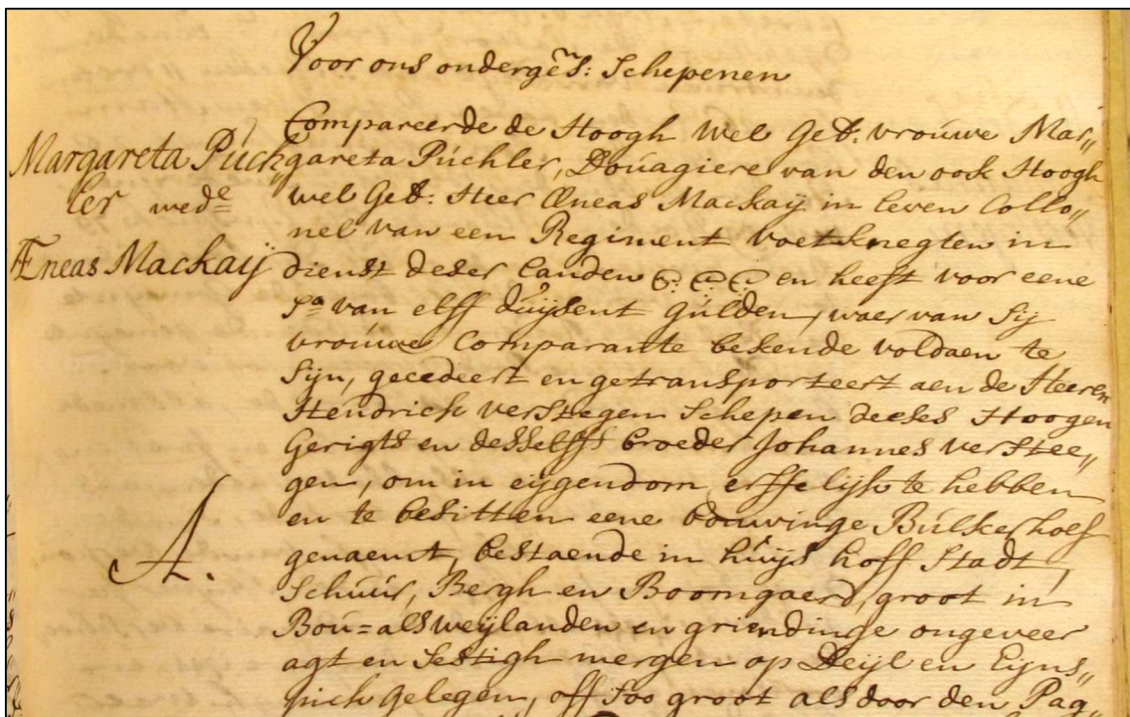 Voor ons onderges: Schepenen
Compareerde de Hoogh wel Geb: vrouwe Mar„
gareta Püchler, Douagiere van den ook Hoogh
wel Geb: Heer Æneas Mackaÿ in leven Collo„
nel van een Regiment voetknegten in
dienst deser landen &: &: & en heeft voor eene
sa van elff duÿsent gulden, waer van sij
vrouwe Comparante bekende voldaen te
sijn, gecedeert en getransporteert aen de Heeren
Hendrick verstegen Schepen deeses Hoogen
Gerigts en desselffs broeder Johannes verstee„
gen, om in eÿgendom erffelijk te hebben
en te besitten eene bouwinge Bulkerhoef
genaemt, bestaende in huÿs hoff Stadt,
Schuur, Bergh en Boomgaerd, groot in
Bou=als weÿlanden en griendinge ongeveer
agt en sestigh mergen op Deÿl en Eÿns„
pick gelegen, off soo groot als door den Pag„
Margareta Püch„
ler wede
Æneas Mackaÿ
A.